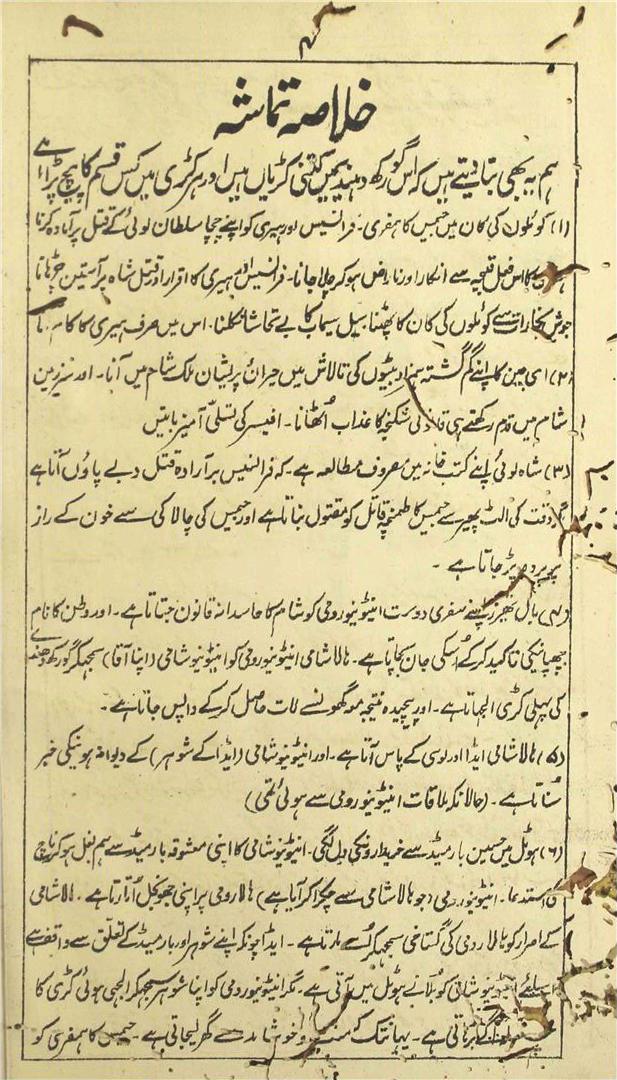 خلاصہ تماشہ
ہم یہ بھی بتا دیتے ہیں کہ اس گورکھ دہندیمیں کتنی کڑیاں ہیں اور ہر کڑی میں کس قسم کا پیچ پڑا ہے
(۱) کوئلوں کی کان میں جیمیس کا ہمفری۔ فرانسیس اور ہیری کو اپنے چچا سلطان لوئی کے قتل پر آمادہ کرنا
کا اس فعل قبیحہ سے انکار اور ناراض ہو کر چلا جانا۔ فرانسیس اور ہیری کا اقرار اور قتل شاہ پر آستین چڑہانا
جوش بخارات سے کوئلوں کی کان کا پھٹنا سیل سیماب کا بے تحاشا نکلنا۔ اس میں صرف ہیری کا کام
(۲) ای جین کا اپنے گم گشتہ ہمزاد بیٹوں کی تالاش میں حیران پریشان ملک شام میں آنا۔ اور سرزمین
شام میں قدم رکھتے ہی قانونی شکنجہ کا عذاب اُٹھانا۔ افیسر کی تسلّی آمیز باتیں
(۳) شاہ لوئی اپنے کتب خانہ میں مصروف مطالعہ ہے۔ کہ فرانسیس برآرادہ قتل دبے پاؤں آتا ہے
وقت کی الٹ پھیر سے جیمیس کا طمنچہ قاتل کو مقتول بناتا ہے اور جیمیس کی چالاکی سے خون کے راز
پر پردہ پڑ جاتا ہے ۔
(۴) بال تھیزر اپنے سفری دوست انیٹونیو رومی کو شام کا حاسدانہ قانون جتاتا ہے۔ اور وطن کا نام
چھپانیکی تاکید کر کے اُسکی جان بچاتا ہے۔ ہالا شامی انیٹونیو رومی کو انیٹونیو شامی (اپنا آقا) سمجہکر گورکھ دھندے
کی پہلی کڑی الجہاتا ہے۔ اور پیچیدہ نتیجہ معہ گھونسے لات حاصل کر کے واپس جاتا ہے۔
(۵) ہالا شامی ایڈا اور لوسی کے پاس آتا ہے۔ اور انیٹونیو شامی (ایڈا کے شوہر) کے دیوانہ ہونیکی خبر
سُناتا ہے۔ (حالانکہ ملاقات انیٹونیو رومی سے ہوئی تھی)
(۶) ہوٹل میں حسین بار میڈ سے خریدارونکی دل لگی۔ انیٹونیو شامی کا اپنی معشوقہ بار میڈ سے ہم بغل ہو کر ناچ
کی استدعا۔ انیٹونیو رومی (جو ہالا شامی سے چکرا کر آیا ہے) ہالا رومی پر اپنی جھونجل اُتارتا ہے۔ ہالا شامی
کے اصرار کو ہالا رومی کی گستاخی سمجہکر اُسے مارتا ہے۔ ایڈا چونکہ اپنے شوہر اور بار میڈ کے تعلق سے واقف ہے
اسلئے انیٹونیو شامی کو بُلانے ہوٹل میں آتی ہے۔ مگر انیٹونیو رومی کو اپنا شوہر سمجہکر الجہی ہوئی کڑی کا
ہے۔ یہانتک کہ منت و خوشامد سے گھر لیجاتی ہے۔ جیمس کا ہمفری کو